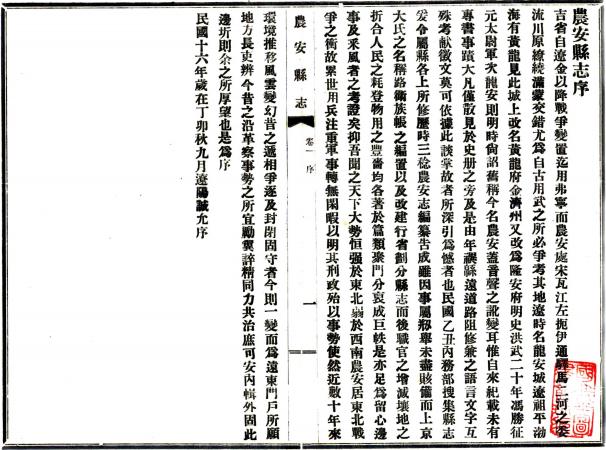 農安縣志序
吉省自遼金以降戰爭變置迄用弗寧而農安處宋瓦江左扼伊通驛馬二河之委
流川原繚繞滿蒙交錯尤爲自古用武之所必爭考其地遼時名龍安城遼祖平渤
海有黃龍見此城上改名黃龍府金濟州又改爲隆安府明史洪武二十年馮勝征
元太尉軍次龍安則明時尙沿舊稱今名農安蓋音聲之訛變耳惟自來紀載未有
專書事蹟大凡僅散見於史册之旁及是由年禩緜遠道路阻修兼之語言文字互
殊考獻徵文莫可依據此談掌故者所深引爲憾者也民國乙丑內務部搜集縣志
爰令屬縣各上所修歷時三稔農安志編纂吿成雖因事屬剏舉未盡賅備而上京
大氏之名稱路衞族帳之編置以及改建行省劃分縣志而後職官之增減壤地之
折合人民之耗登物用之豐嗇均各著於篇類聚門分裒成巨帙是亦足爲留心邊
事及釆風者之考證矣抑吾聞之天下大勢恒强於東北弱於西南農安居東北戰
爭之衝故累世用兵注重軍事轉無閑暇以明其刑政殆以事勢使然近數十年來
農安縣志
卷一 序
一
環境推移風雲變幻昔之遞相爭逐及封閉固守者今則一變而爲遠東門戶所願
地方長吏辨今昔之沿革察事勢之所宜勵翼誶精同力共治庶可安內輯外固此
邊圻則余之所厚望也是爲序
民國十六年歲在丁卯秋九月遼陽誠允序